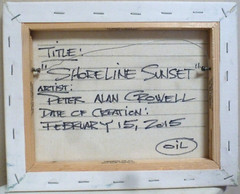 TITLE:
"SHORELINE SUNSET"
ARTIST:
PETER ALAN CROWELL
DATE OF CREATION:
FEBRUARY 15, 2015
OIL